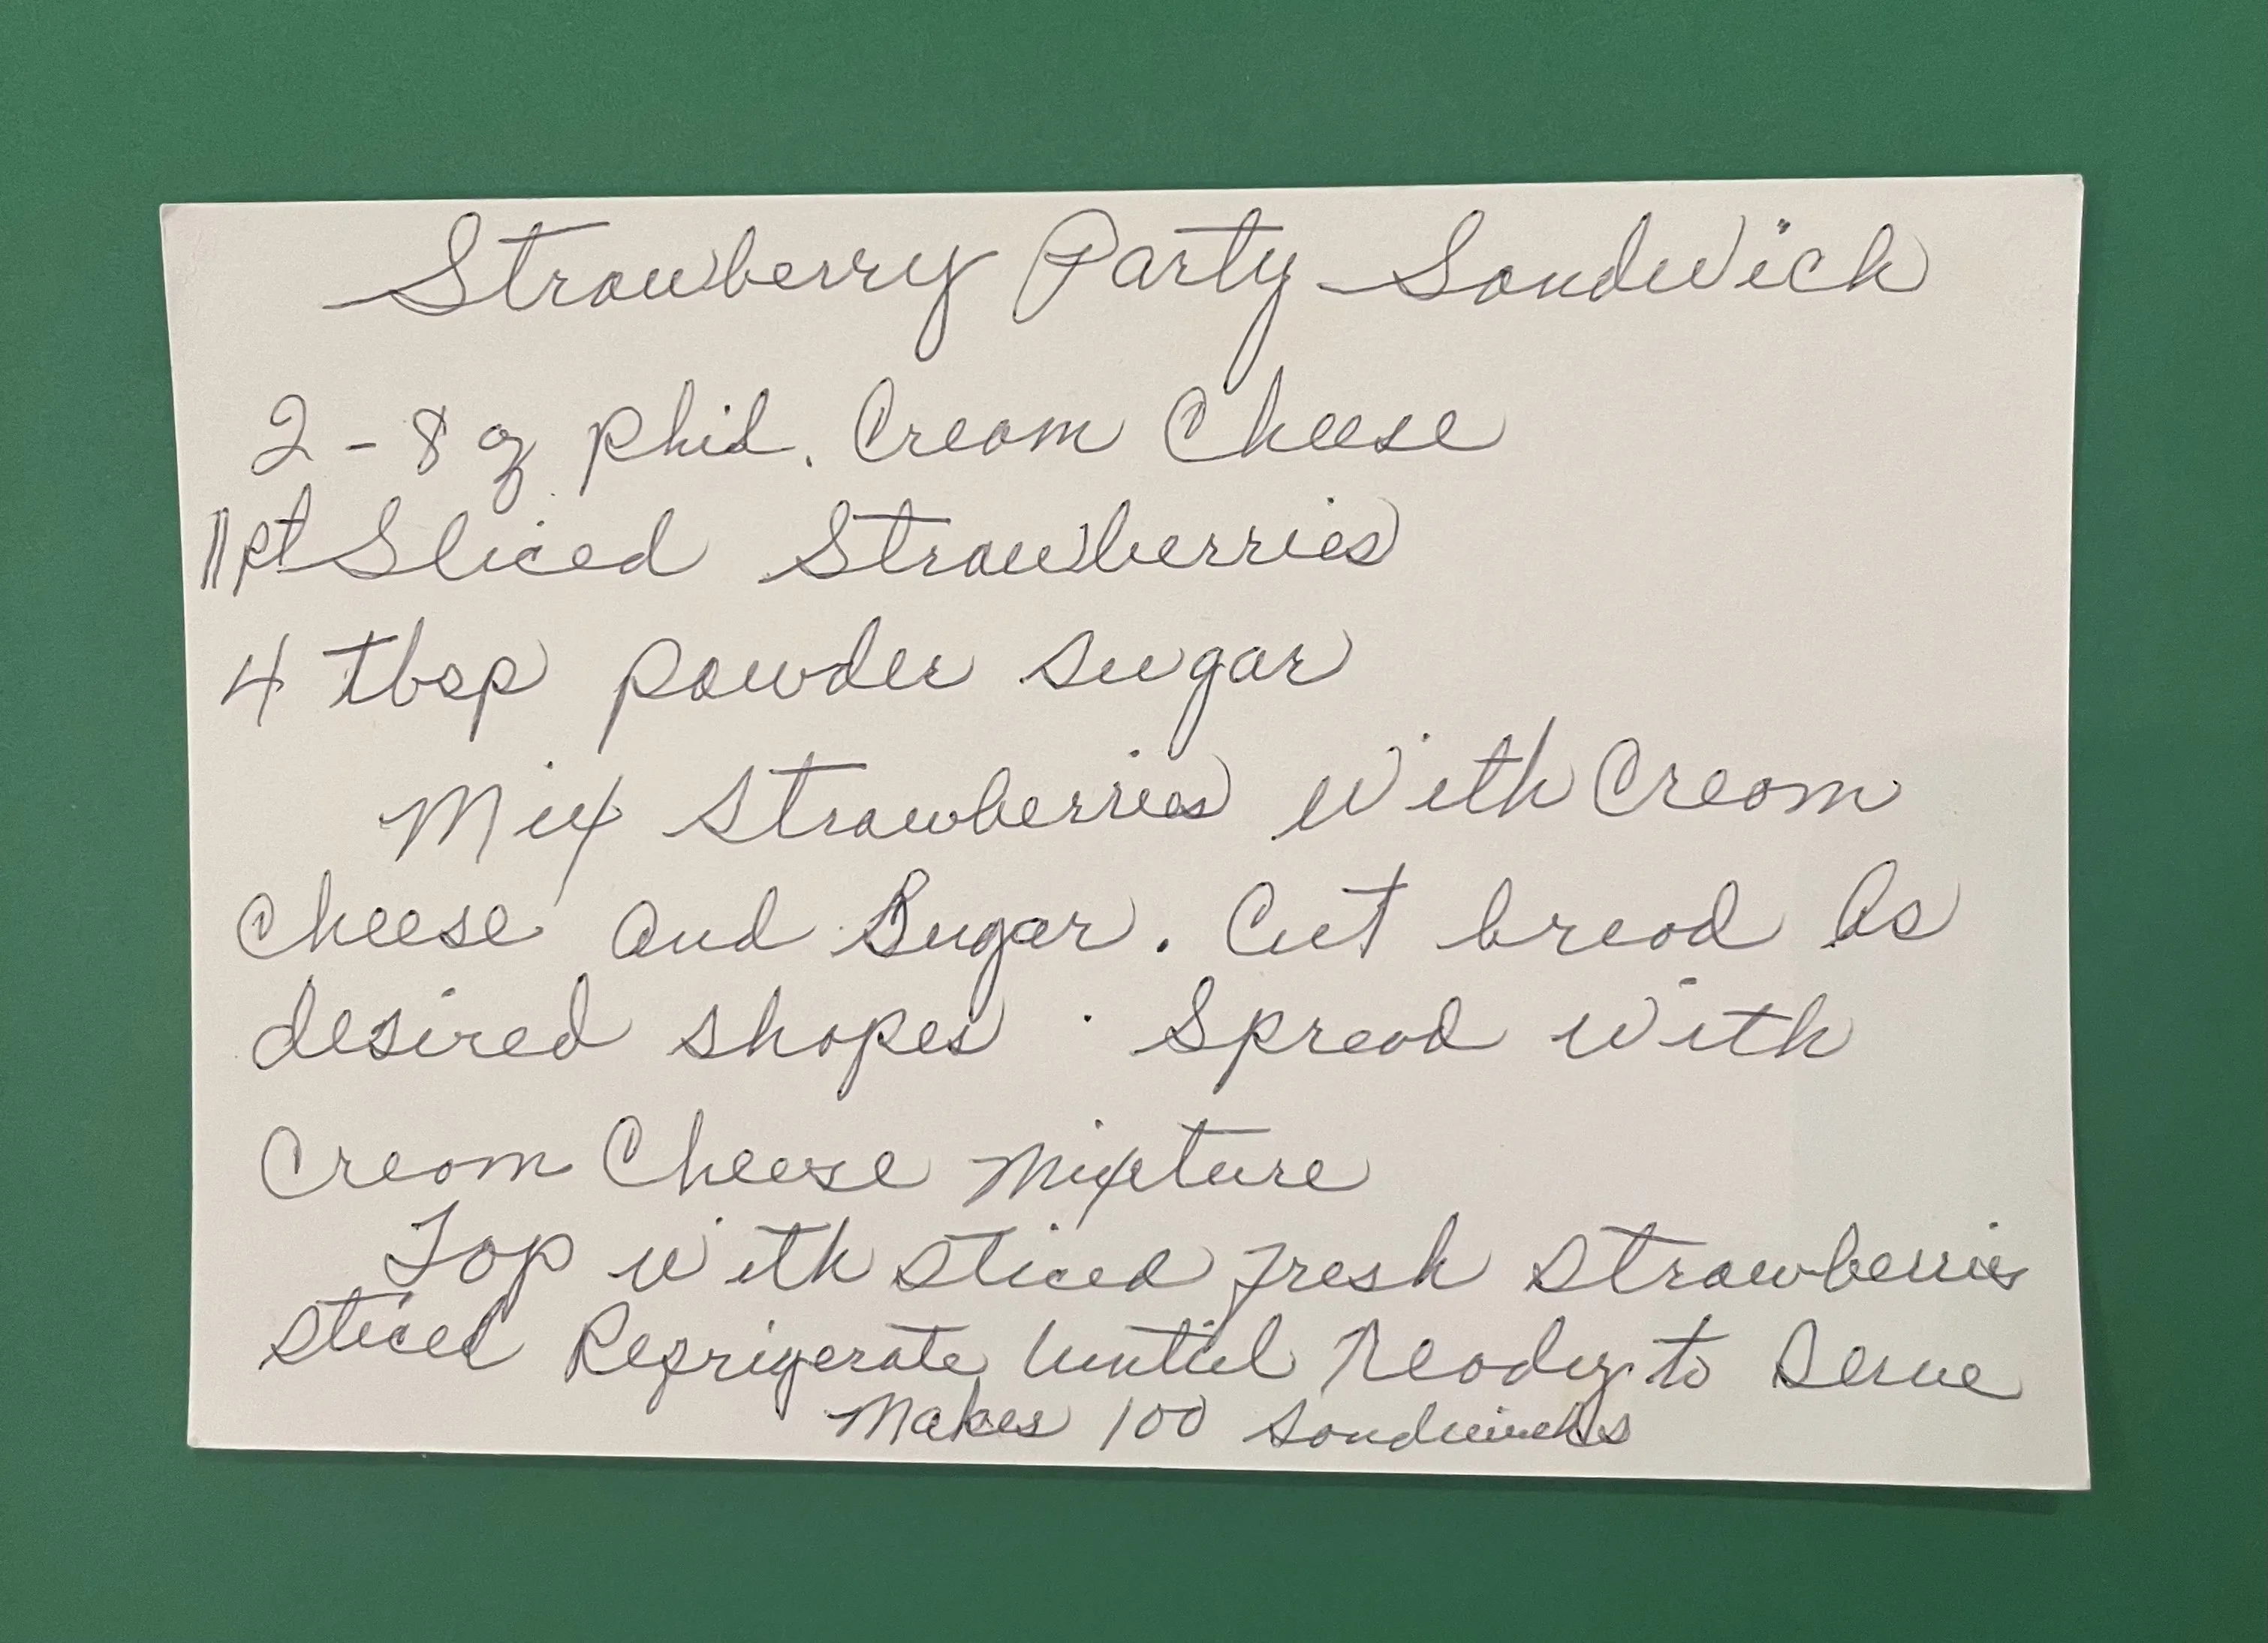 Strawberry Party Sandwich
2 - 8 oz Phil. Cream Cheese
1 pt Sliced Strawberries
4 tbsp powder sugar
Mix strawberries with Cream
Cheese and Sugar. Cut bread As
desired shapes. Spread with
Cream Cheese Mixture
Top with sliced fresh strawberries
sliced Refrigerate Until Ready to Serve
Makes 100 sandwichs